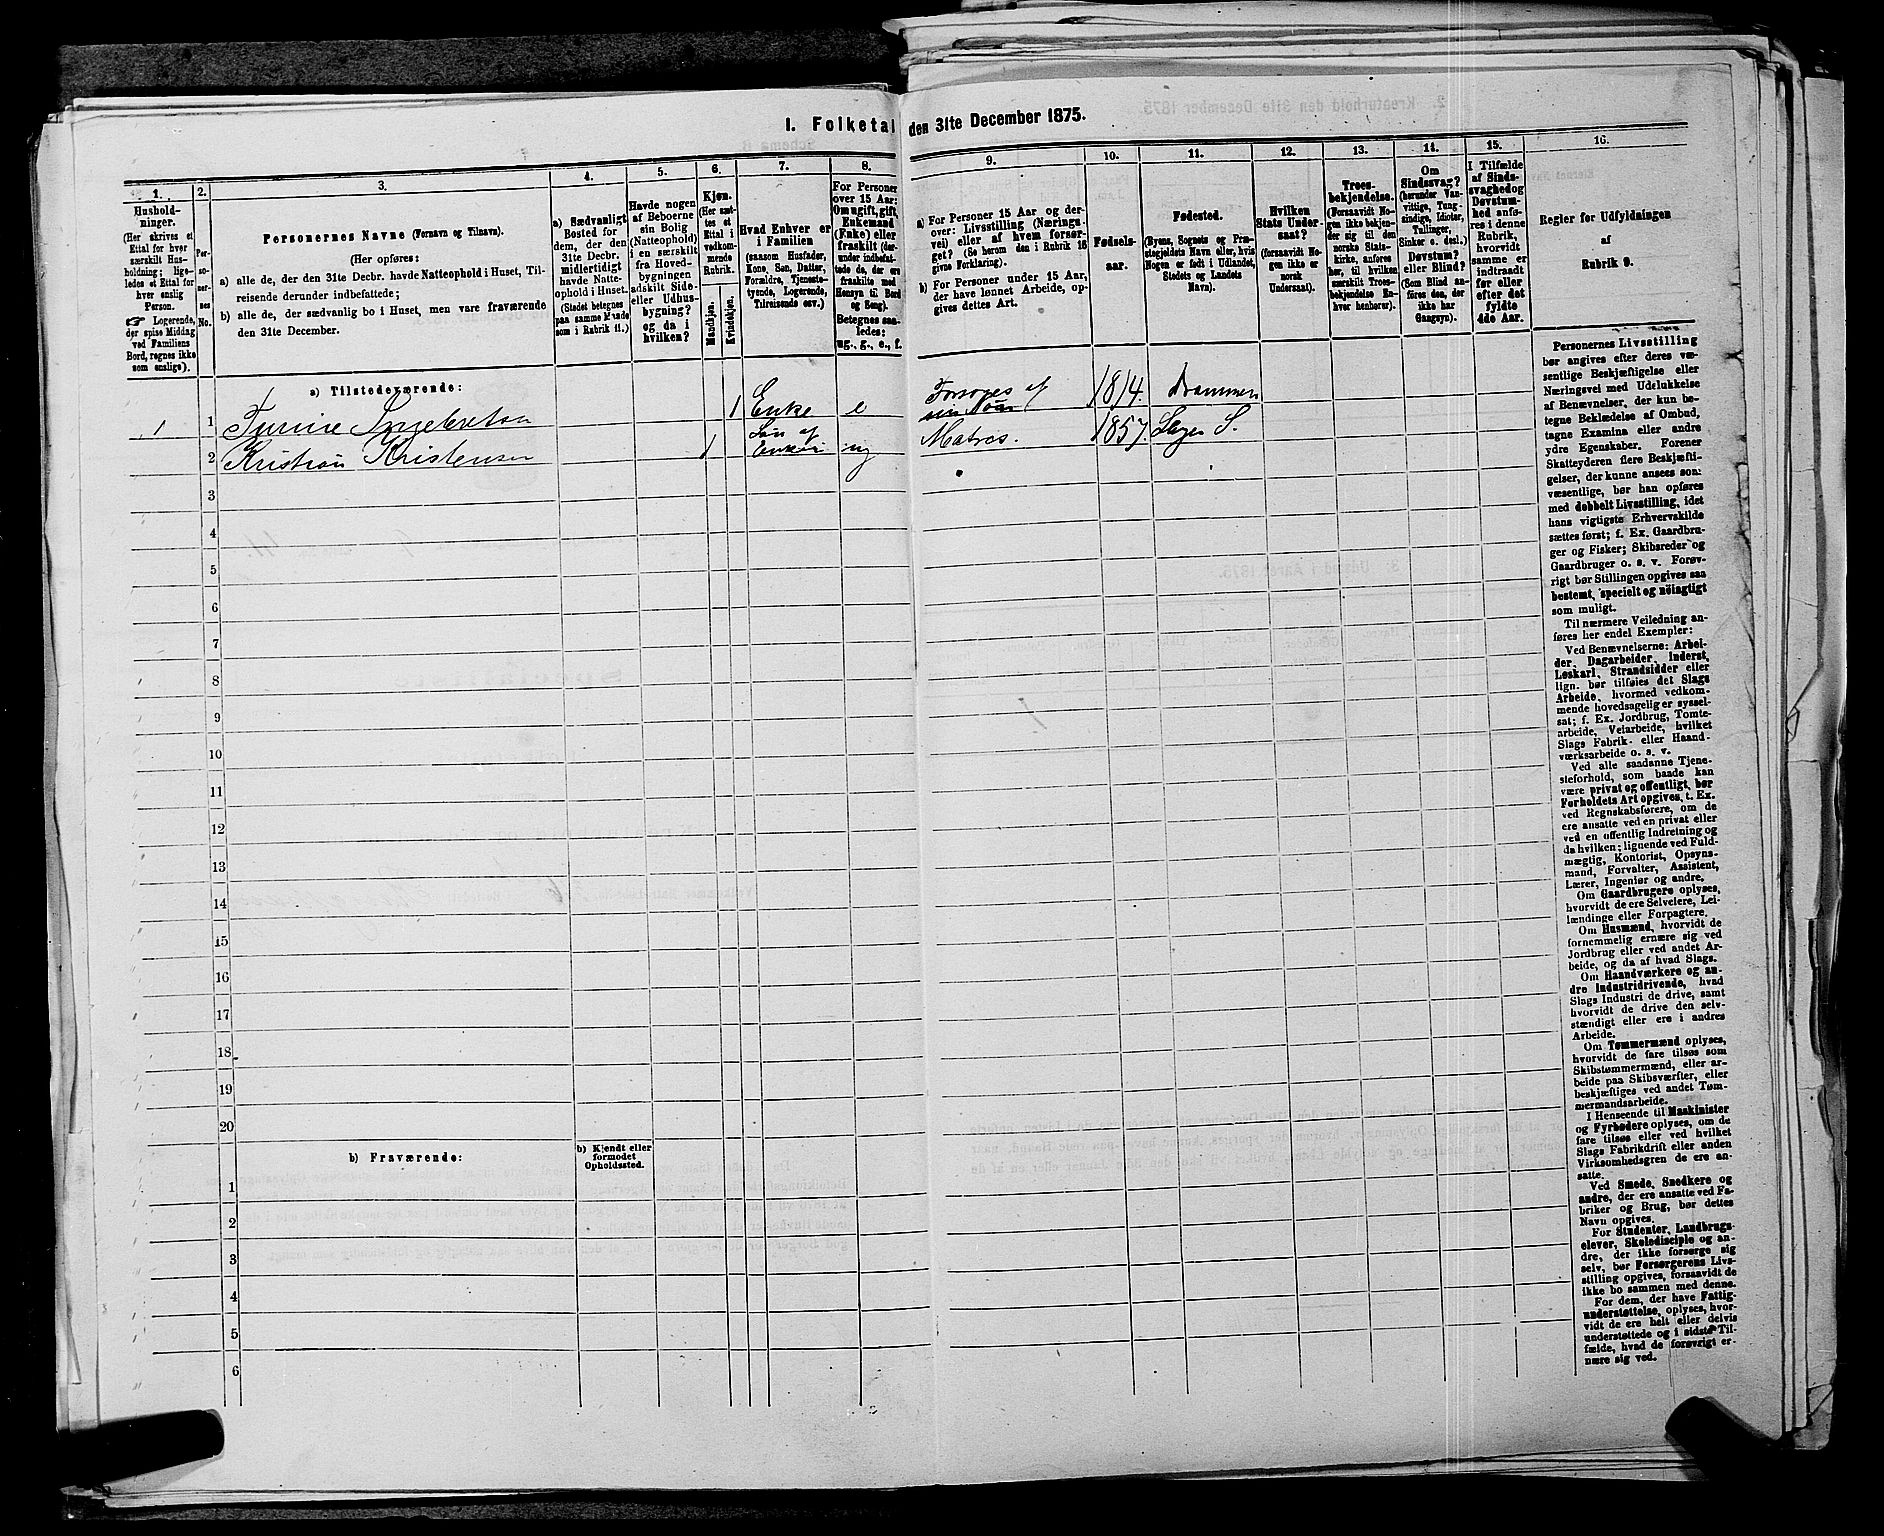 I. Folketal den 31te December 1875.
1.
Hushold-
ninger.
(Her skrives et
Ettal for hver
særskilt Hus-
holdning; lige-
ledes et Ettal for
hver enslig
Person.
☞ Logerende,
der spise Middag
ved Familiens
Bord, regnes ikke
som enslige).
2.
Per-
so-
ner-
nes
No.
3.
Personernes Navne (Fornavn og Tilnavn).
(Her opføres:
a) alle de, der den 31te Decbr. havde Natteophold i Huset, Til-
reisende derunder indbefattede;
b) alle de, der sædvanlig bo i Huset, men vare fraværende
den 31te December.
4.
a) Sædvanligt
Bosted for
dem, der den
31te Decbr.
midlertidigt
havde Natte-
ophold i Huset.
(Stedet betegnes
paa samme Maade
som i Rubrik 11.)
5.
Havde nogen
af Beboerne
sin Bolig
(Natteophold)
i en særskilt
fra Hoved-
bygningen
adskilt Side-
eller Udhus-
bygning?
og da i
hvilken?
6.
Kjøn.
(Her sæt-
tes et
Ettal i
vedkom-
mende
Rubrik.
Mandkjøn.
Kvindekjøn.
7.
Hvad Enhver er
i Familien
(saasom Husfader,
Kone, Søn, Datter,
Forældre, Tjeneste-
tyende, Logerende,
Tilreisende osv.)
8.
For Personer
over 15 Aar:
Om ugift, gift,
Enkemand
(Enke) eller
fraskilt (der-
under indbefat-
tede de, der ere
fraskilte med
Hensyn til Bord
og Seng).
Betegnes saa-
ledes:
ug., g., e., f.
9.
a) For Personer 15 Aar og der-
over: Livsstilling (Nærings-
vei) eller af hvem forsør-
get? (Se herom den i Rubrik 16
givne Forklaring).
b) For Personer under 15 Aar,
der have lønnet Arbeide, op-
gives dettes Art.
10.
Fødsels-
aar.
11.
Fødested.
(Byens, Sognets og Præ-
stegjeldets Navn eller, hvis
Nogen er født i Udlandet,
Stedets og Landets
Navn).
12.
Hvilken
Stats Under-
saat?
(forsaavidt No-
gen ikke er
norsk
Undersaat).
13.
Troes-
bekjendelse.
(Forsaavidt No-
gen ikke bekjen-
der sig til den
norske Stats-
kirke, anføres
her, til hvilken
særskilt Troes-
bekjendelse En-
hver henhører).
14.
Om
Sindssvag?
(herunder Van-
vittige, Tung-
sindige, Idioter,
Tullinger,
Sinker o. desl.)
Døvstum?
eller Blind?
(Som Blind an-
føres den, der
ikke har
Gangsyn).
15.
I Tilfælde
af Sinds-
svaghed og
Døvstum-
hed anfø-
res i denne
Rubrik,
hvorvidt
samme er
indtraadt
før eller
efter det
fyldte
4de Aar.
16.
Regler for Udfyldningen
af
Rubrik 9.
a) Tilstedeværende:
1 1 Turine Ingebretsen 1 Enke e Forsørges af sin Søn 1814. Drammen
2 Kristian Kristensen 1 Søn af Enken ug Matros. 1857. Slagen S.
3
4
5
6
7
8
9
10
11
12
13
14
15
16
17
18
19
20
b) Fraværende:
b) Kjendt eller
formodet
Opholdssted.
1
2
3
4
5
6
Personernes Livsstilling
bør angives efter deres væ-
sentlige Beskjæftigelse eller
Næringsvei med Udelukkelse
af Benævnelser, der kun be-
tegne Beklædelse af Ombud,
tagne Examina eller andre
ydre Egenskaber. Forener
Skatteyderen flere Beskjæfti-
gelser, der kunne ansees som
væsentlige, bør han opføres
med dobbelt Livsstilling, idet
hans vigtigste Erhvervskilde
sættes først; f. Ex. Gaardbru-
ger og Fisker; Skibsreder og
Gaardbruger o. s. v. Forøv-
rigt bør Stillingen opgives saa
bestemt, specielt og nøiagtigt
som muligt.
Til nærmere Veiledning an-
føres her endel Exempler:
Ved Benævnelserne: Arbei-
der, Dagarbeider, Inderst,
Løskarl, Strandsidder eller
lign. bør tilføies det Slags
Arbeide, hvormed vedkom-
mende hovedsagelig er syssel-
sat; f. Ex. Jordbrug, Tomte-
arbeide, Veiarbeide, hvilket
Slags Fabrik- eller Haand-
værksarbeide o. s. v.
Ved alle saadanne Tjene-
steforhold, som baade kan
være privat og offentligt, bør
Forholdets Art opgives, t. Ex.
ved Regnskabsførere, om de
ere ansatte ved en privat eller
ved en offentlig Indretning og
da hvilken; lignende ved Fuld-
mægtig, Kontorist, Opsyns-
mand, Forvalter, Assistent,
Lærer, Ingeniør og andre.
Om Gaardbrugere oplyses,
hvorvidt de ere Selveiere, Lei-
lændinge eller Forpagtere.
Om Husmænd, hvorvidt de
fornemmelig ernære sig ved
Jordbrug eller ved andet Ar-
beide, og da af hvad Slags.
Om Haandværkere og an-
dre Industridrivende, hvad
Slags Industri de drive, samt
hvorvidt de drive den selv-
stændigt eller ere i andres
Arbeide.
Om Tømmermænd oplyses,
hvorvidt de fare tilsøs som
Skibstømmermænd, eller ar-
beide paa Skibsværfter, eller
beskjæftiges ved andet Tøm-
mermandsarbeide.
I Henseende til Maskinister
og Fyrbødere oplyses, om de
fare tilsøs eller ved hvilket
Slags Fabrikdrift eller anden
Virksomhedsgren de ere an-
satte.
Ved Smede, Snedkere og
andre, der ere ansatte ved Fa-
briker og Brug, bør dettes
Navn opgives.
For Studenter, Landbrugs-
elever, Skoledisciple og an-
dre, der ikke forsørge sig
selv, bør Forsørgerens Livs-
stilling opgives, forsaavidt de
ikke bo sammen med denne.
For dem, der have Fattig-
understøttelse, oplyses, hvor-
vidt de ere helt eller delvis
understøttede og i sidste Til-
fælde, hvad de forøvrigt er-
nære sig ved.